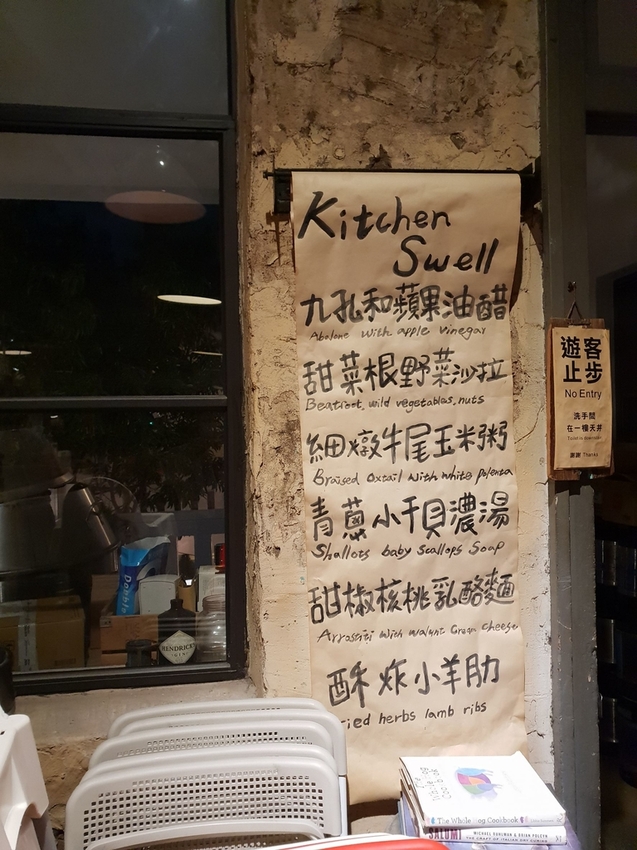 Kitchen
Swell
九孔和蘋果油醋
Abalone with apple vinegar
甜菜根野菜沙拉
Beatroot, wild vegetables, nuts
細燉牛尾玉米粥
Braised Oxtail with white polenta
青蔥小干貝濃湯
Shallots baby Scallops Soap
甜椒核桃乳酪麵
with walnut Cream cheese
酥炸小羊肋
ried herbs lamb ribs
遊客
止步
No Entry
洗手間
在一樓天井
Toilet is downstairs
謝謝 Thanks
HENDRICK'S
GIN
The Whole Egg Cookbook
SALUMI
MICHAEL RUHLMAN & BRIAN POLCYN
THE CRAFT OF ITALIAN DRY CURING